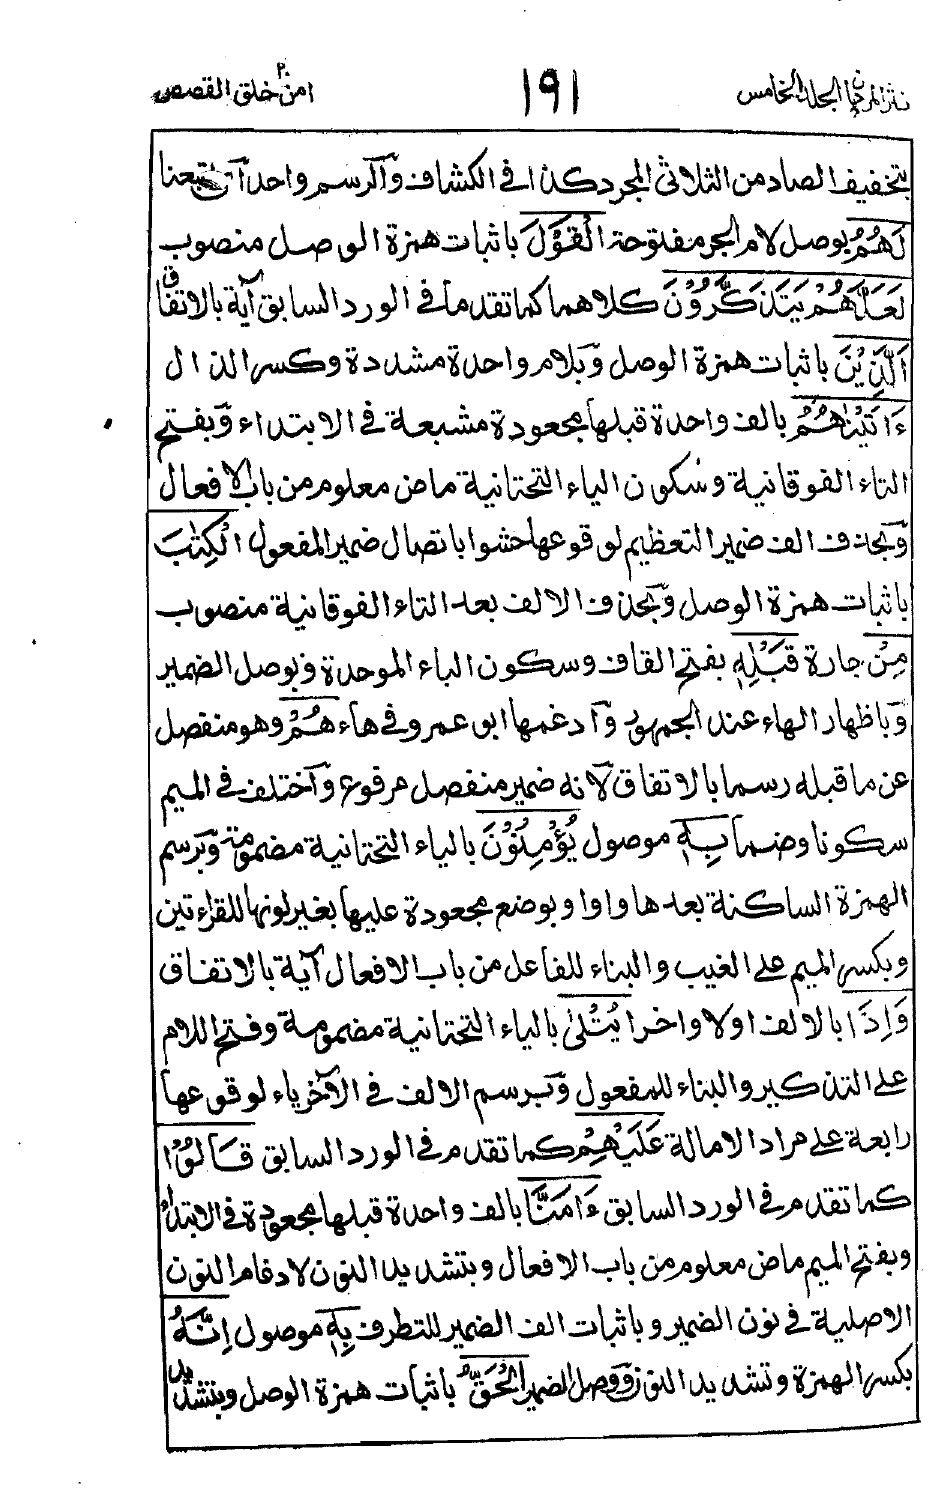 نثر المرجان المجلد الخامس
١٩١
امن خلق ٢٠ القصص
بتخفيف الصاد من الثلاثى المجرد كذا فى الكشاف والرسم واحد اى تبعنا
لَهُمُ بوصل لام الجر مفتوحة الْقَوْلَ باثبات همزة الوصل منصوب
لَعَلَّهُمْ يَتَذَكَّرُوْنَ كلاهما كما تقدما فى الورد السابق آية بالاتفاق
اَلَّذِيْنَ باثبات همزة الوصل وبلام واحدة مشددة وكسر الذال
ءَاتَيْنٰهُمُ بالف واحدة قبلها مجعودة مشبعة فى الابتداء وبفتح
التاء الفوقانية وسكون الياء التحتانية ماض معلوم من باب الافعال
وبحذف الف ضمير التعظيم لوقوعها حشوا باتصال ضمير المفعول الْكِتٰبَ
باثبات همزة الوصل وبحذف الالف بعد التاء الفوقانية منصوب
مِنْ جارة قَبْلِهٖ بفتح القاف وسكون الباء الموحدة وبوصل الضمير
وباظهار الهاء عند الجمهور وادغمها ابو عمرو فى هاء هُمْ وهو منفصل
عن ما قبله رسما بالاتفاق لانه ضمير منفصل مرفوع واختلف فى الميم
سكونا وضما بِهٖ موصول يُؤْمِنُوْنَ بالياء التحتانية مضمومة وبرسم
الهمزة الساكنة بعدها واوا وبوضع مجعودة عليها بغير لونها للقراءتين
وبكسر الميم على الغيب والبناء للفاعل من باب الافعال آية بالاتفاق
وَاِذَا بالالف اولا واخرا يُتْلٰى بالياء التحتانية مضمومة وفتح اللام
على التذكير والبناء للمفعول وبرسم الالف فى الآخر ياء لوقوعها
رابعة على مراد الامالة عَلَيْهِمْ كما تقدم فى الورد السابق قَالُوْا
كما تقدم فى الورد السابق ءَامَنَّا بالف واحدة قبلها مجعودة فى الابتداء
وبفتح الميم ماض معلوم من باب الافعال وبتشديد النون لادغام النون
الاصلية فى نون الضمير وباثبات الف الضمير للتطرف بِهٖ موصول اِنَّهُ
بكسر الهمزة وتشديد النون ووصل الضمير الْحَقُّ باثبات همزة الوصل وبتشديد